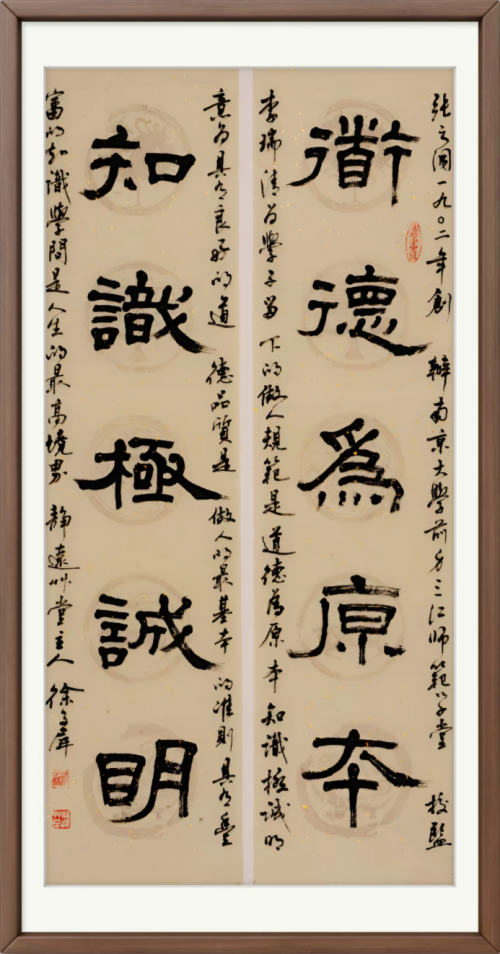 張之洞一九〇二年創辦南京大學前身三江師範學堂校監
衜德爲原本
李瑞清为學子留下的做人規範是道德為原本知識極誠明
意为具有良好的道德品質是做人的最基本的准則具有豐
知識極誠明
富的知識學問是人生的最高境界 靜遠艸堂主人 徐